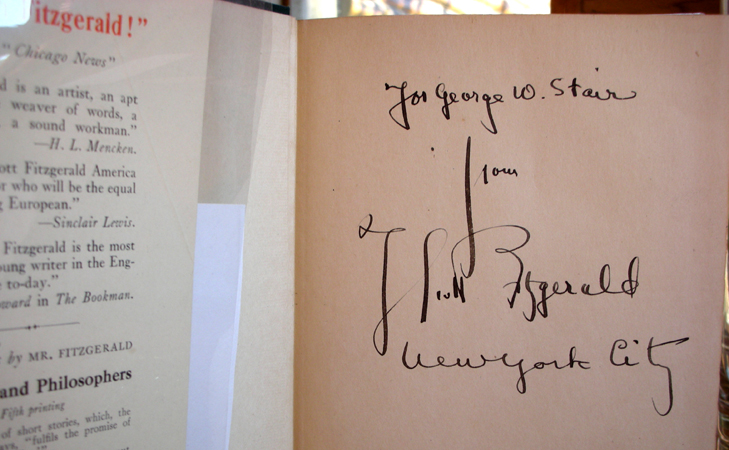 itzgerald!"
"Chicago News"
d is an artist, an apt
weaver of words, a
a sound workman."
—H. L. Mencken.
ott Fitzgerald America
r who will be the equal
g European."
—Sinclair Lewis.
Fitzgerald is the most
oung writer in the Eng-
to-day."
oward in The Bookman.
by MR. FITZGERALD
and Philosophers
Fifth printing
of short stories, which, the
ays, "fulfils the promise of
For George W. Stair
from
F Scott Fitzgerald
New York City